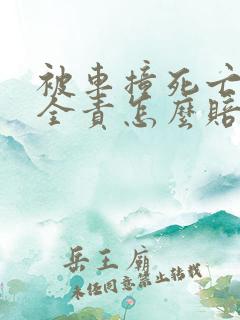 被車撞死亡
全責怎麼賠
岳王廟
未經同意禁止轉載